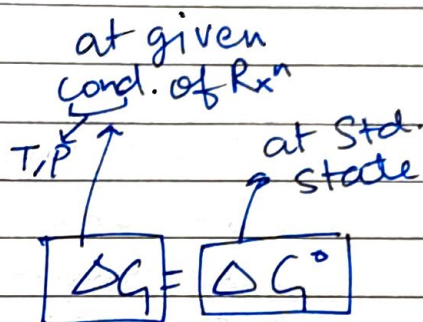 at given
cond. of Rxⁿ
T,P
at Std.
state
ΔG = ΔG°